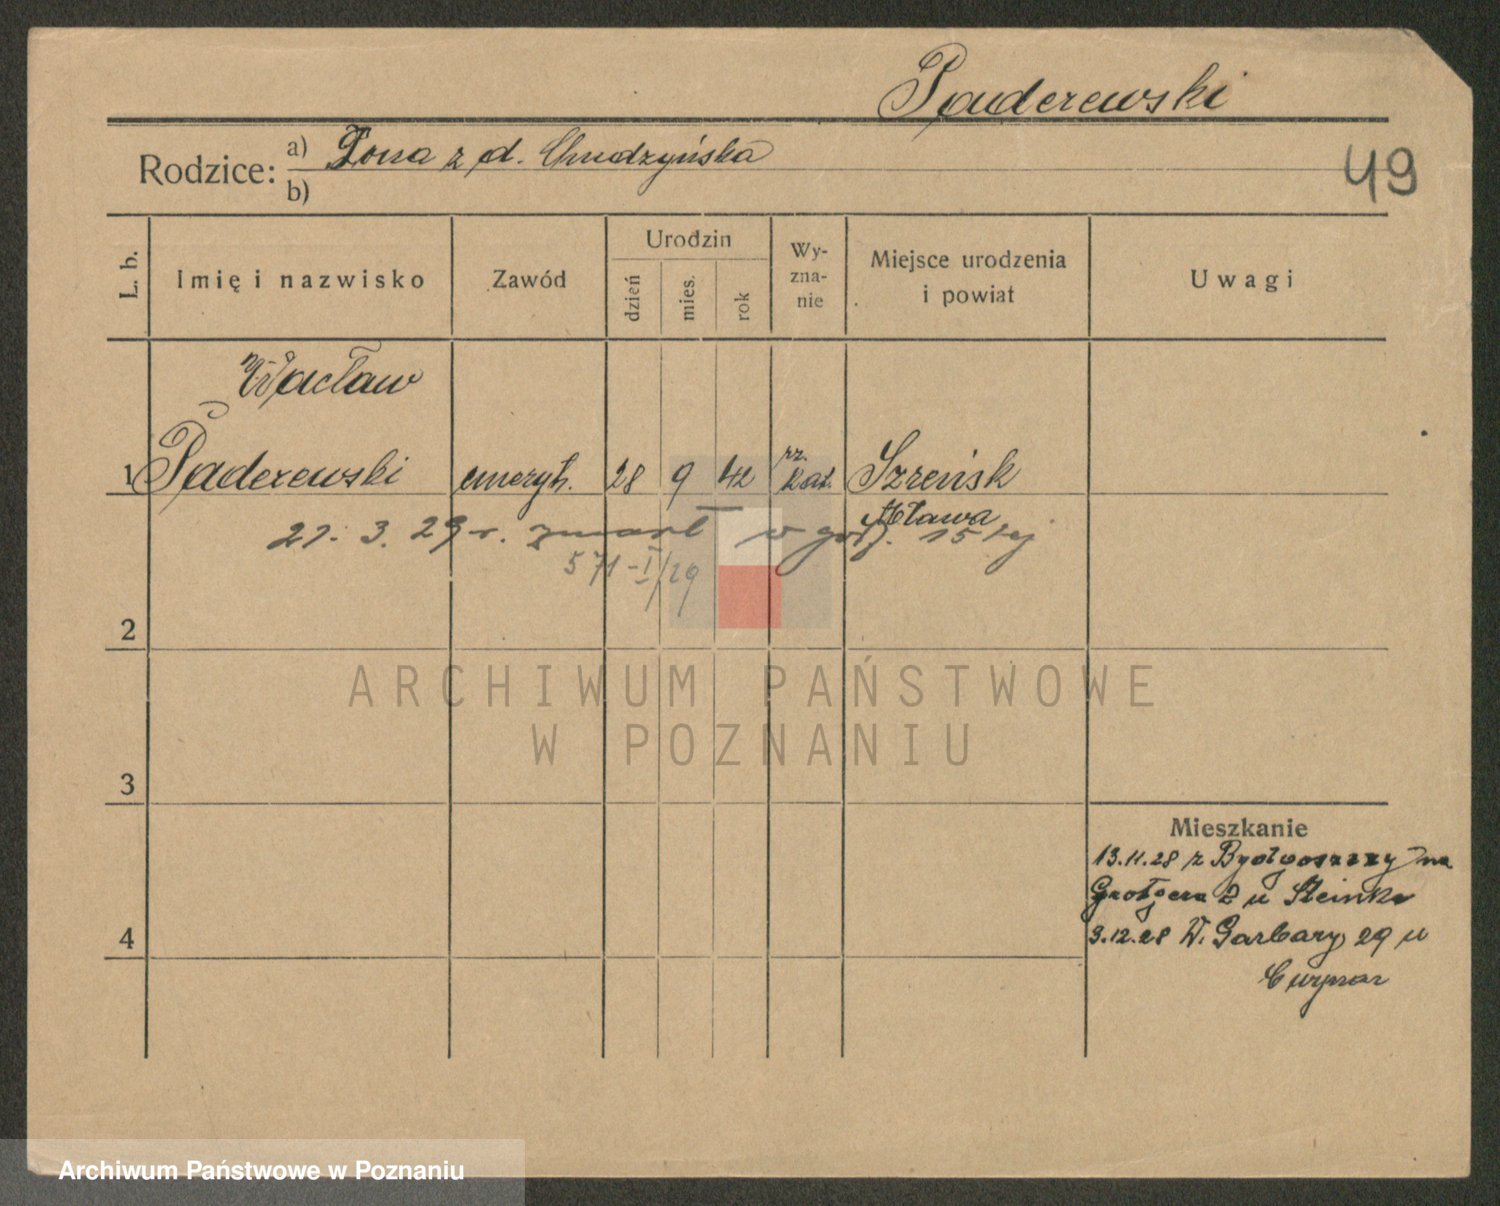 Paderewski
Rodzice: a) Żona z d. Chudzyńska
b)
49
L. b.
Imię i nazwisko
Zawód
Urodzin
dzień
mies.
rok
Wy-
zna-
nie
Miejsce urodzenia
i powiat
Uwagi
Wacław
1 Paderewski emeryt. 28 9 42 rz. kat. Szreńsk
Mława
21. 3. 29 r. zmarł w godz. 15 tej
571-I/29
2
ARCHIWUM PAŃSTWOWE
W POZNANIU
3
Mieszkanie
13.11.28 z Bydgoszczy na
Grotgera 2 u Steinke
4
3.12.28 W. Garbary 29 u
Archiwum Państwowe w Poznaniu